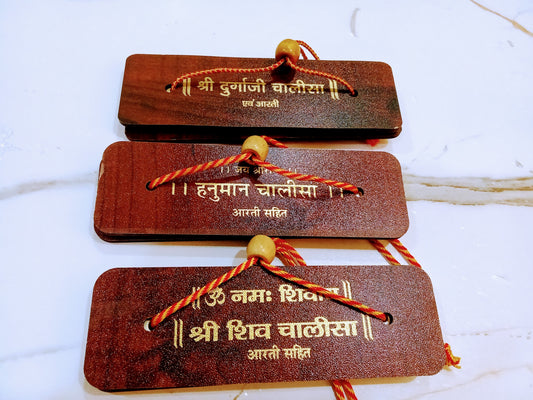 ॥ श्री दुर्गाजी चालीसा ॥
एवं आरती
।। जय श्रीराम
।। हनुमान चालीसा ।।
आरती सहित
॥ ॐ नमः शिवाय ॥
॥ श्री शिव चालीसा ॥
आरती सहित